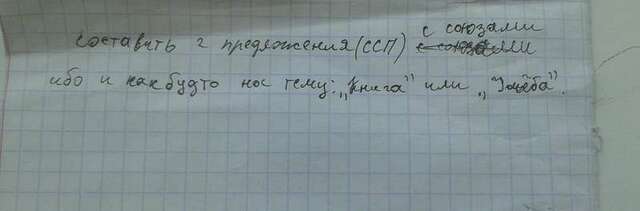 составить 2 предложения (ССП) с союзами
ибо и как будто на тему: „Книга" или „Учёба".